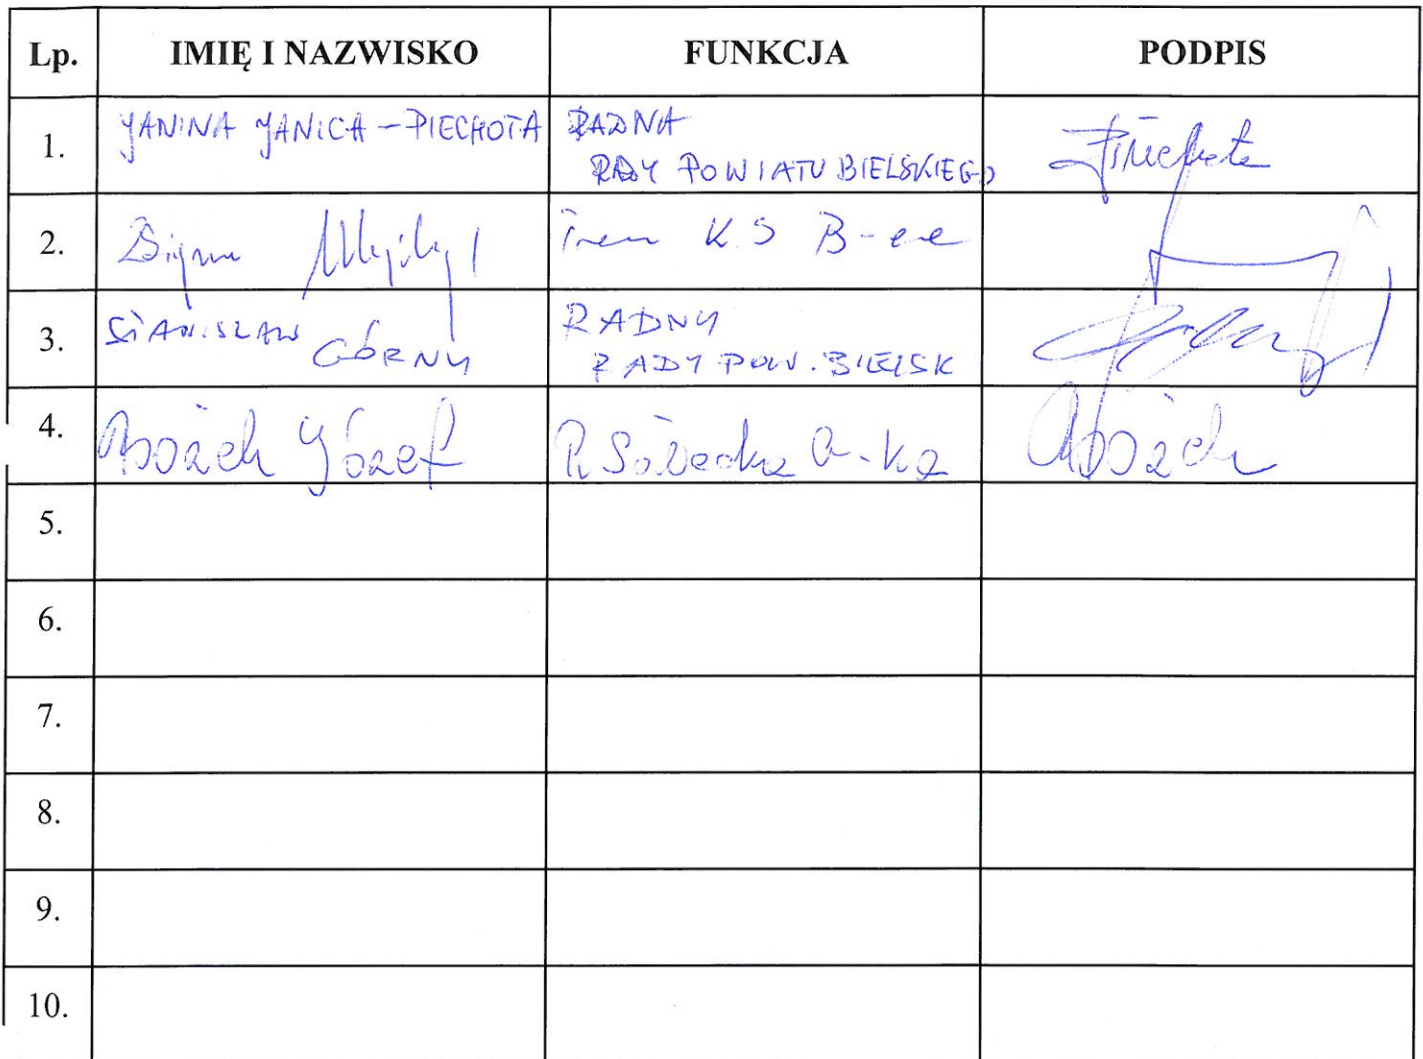 Lp. IMIĘ I NAZWISKO FUNKCJA PODPIS
1. JANINA JANICA-PIECHOTA RADNA
RADY POWIATU BIELSKIEGO Piechota
2. K S B-
3. STANISŁAW GÓRNY RADNY
RADY POW. BIELSK
4. Bożek Józef R. Sołecka Bożek
5.
6.
7.
8.
9.
10.